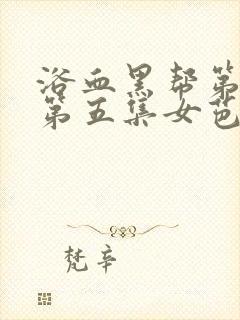 浴血黑帮第
第五集女芭
梵辛